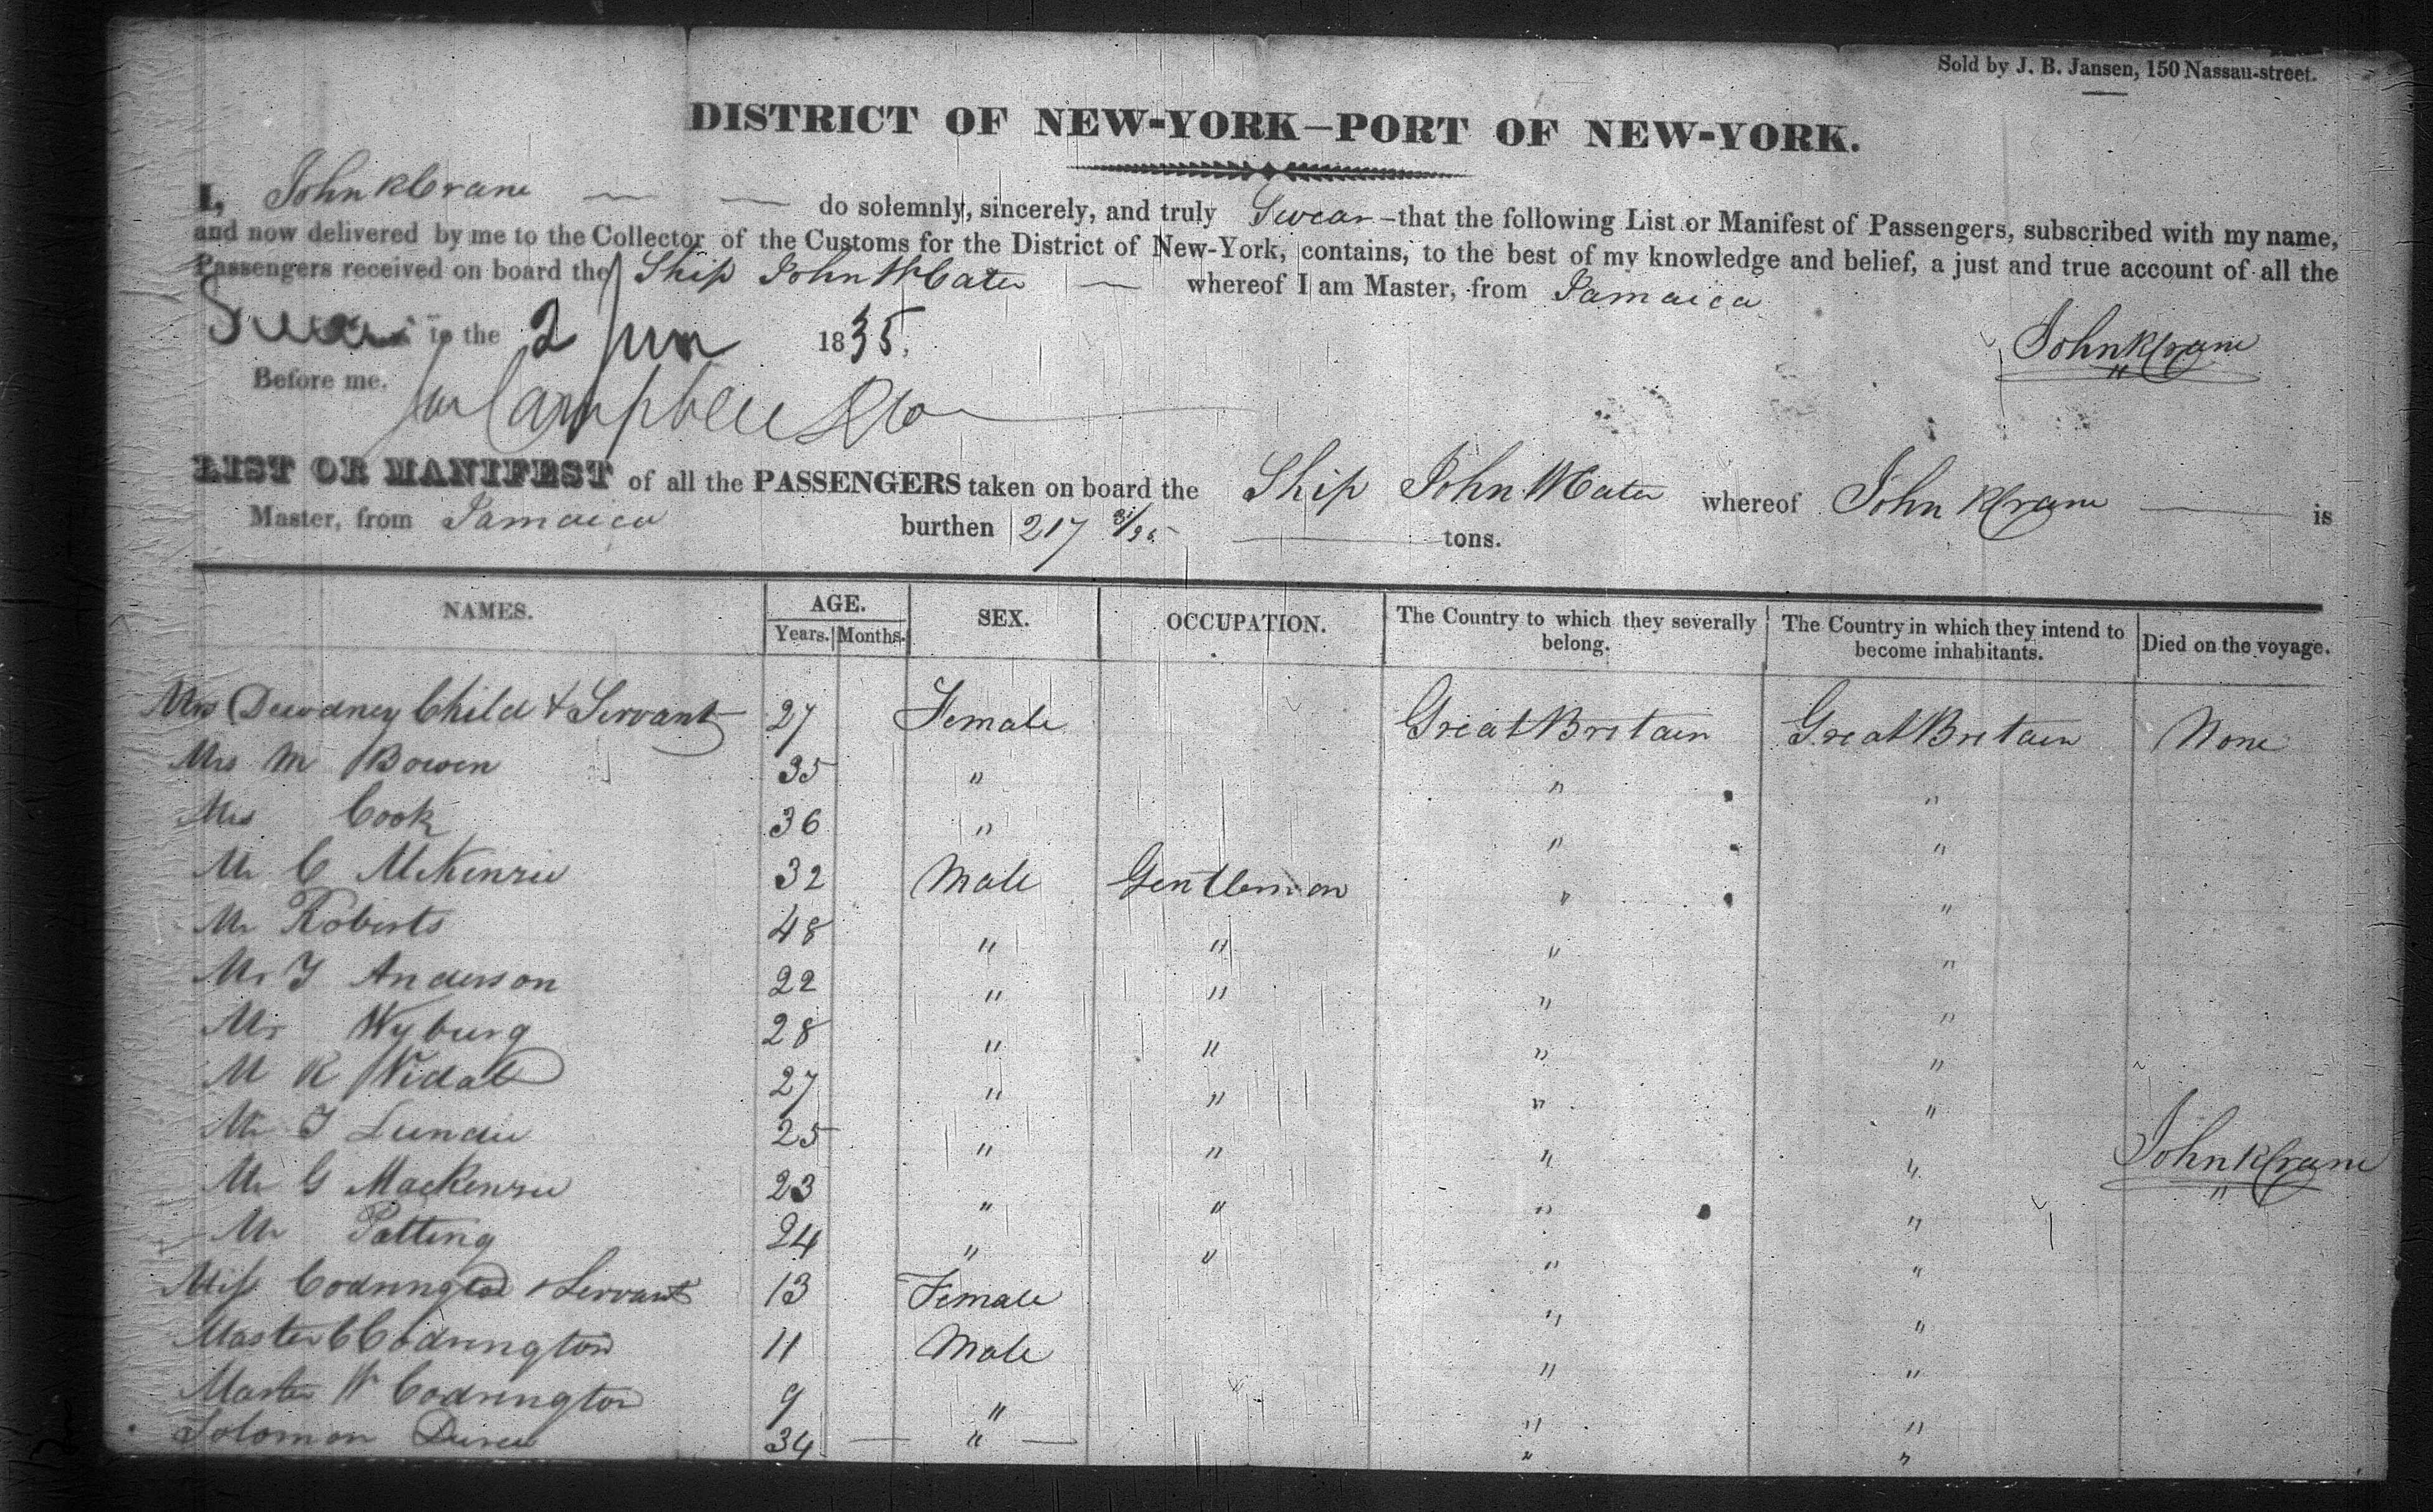 Sold by J. B. Jansen, 150 Nassau-street.
DISTRICT OF NEW-YORK—PORT OF NEW-YORK.
I, John R Crane do solemnly, sincerely, and truly Swear that the following List or Manifest of Passengers, subscribed with my name,
and now delivered by me to the Collector of the Customs for the District of New-York, contains, to the best of my knowledge and belief, a just and true account of all the
Passengers received on board the Ship John W Cater whereof I am Master, from Jamaica
to the 2 June 1835,
John R Crane
Before me. Campbell
LIST OR MANIFEST of all the PASSENGERS taken on board the Ship John W Cater whereof John R Crane is
Master, from Jamaica burthen 217 31/95 tons.
NAMES. AGE. Years. Months. SEX. OCCUPATION. The Country to which they severally belong. The Country in which they intend to become inhabitants. Died on the voyage.
Mrs Dewdney Child & Servant 27 Female Great Britain Great Britain None
Mrs M Bowen 35 " " "
Mrs Cook 36 " " "
Mr C McKenzie 32 Male Gentleman " "
Mr Roberts 48 " " " "
Mr J Anderson 22 " " " "
Mr Wyburg 28 " " " "
M R Vidal 27 " " " "
Mr J Lundie 25 " " " "
John R Crane
Mr G MacKenzie 23 " " " "
Mr Patting 24 " " " "
Miss Codrington & Servant 13 Female " "
Master C Codrington 11 Male " "
Master W Codrington 9 " " "
Solomon 34 " " "